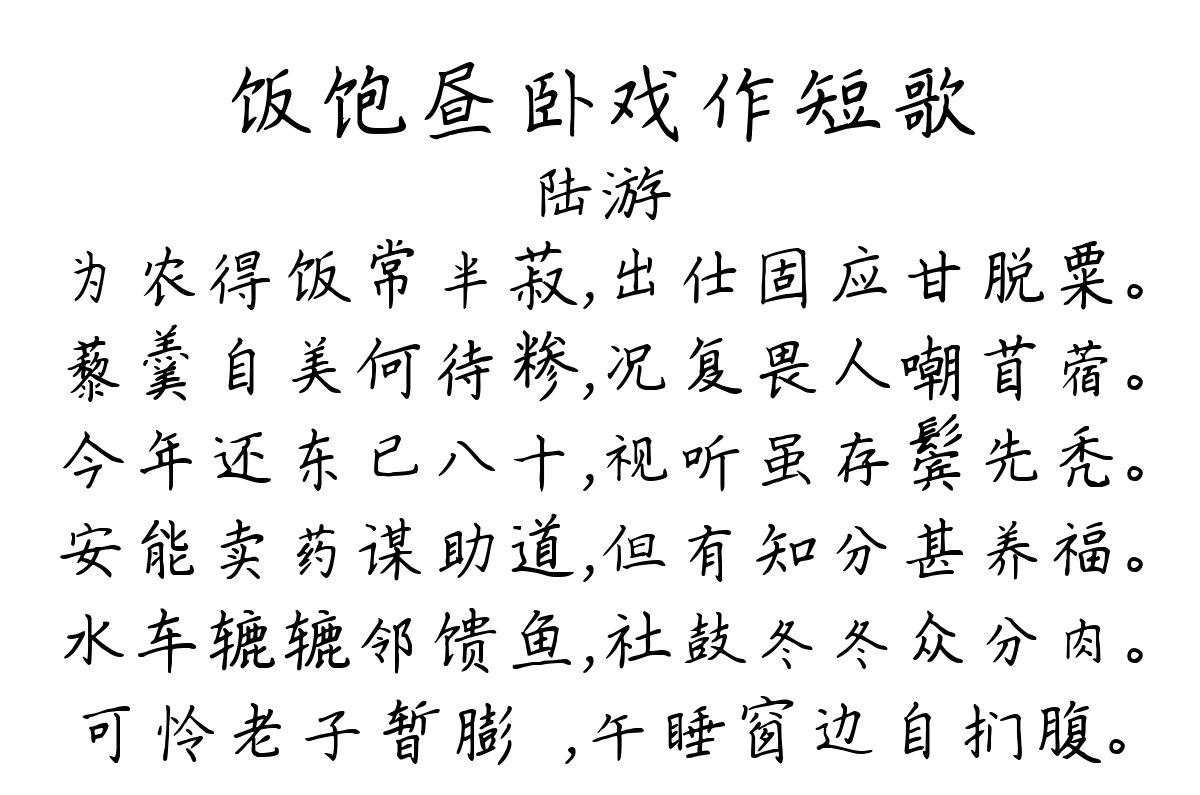 饭饱昼卧戏作短歌
陆游
为农得饭常半菽,出仕固应甘脱粟。
藜羹自美何待糁,况复畏人嘲苜蓿。
今年还东已八十,视听虽存鬓先秃。
安能卖药谋助道,但有知分甚养福。
水车辘辘邻馈鱼,社鼓冬冬众分肉。
可怜老子暂膨 ,午睡窗边自扪腹。